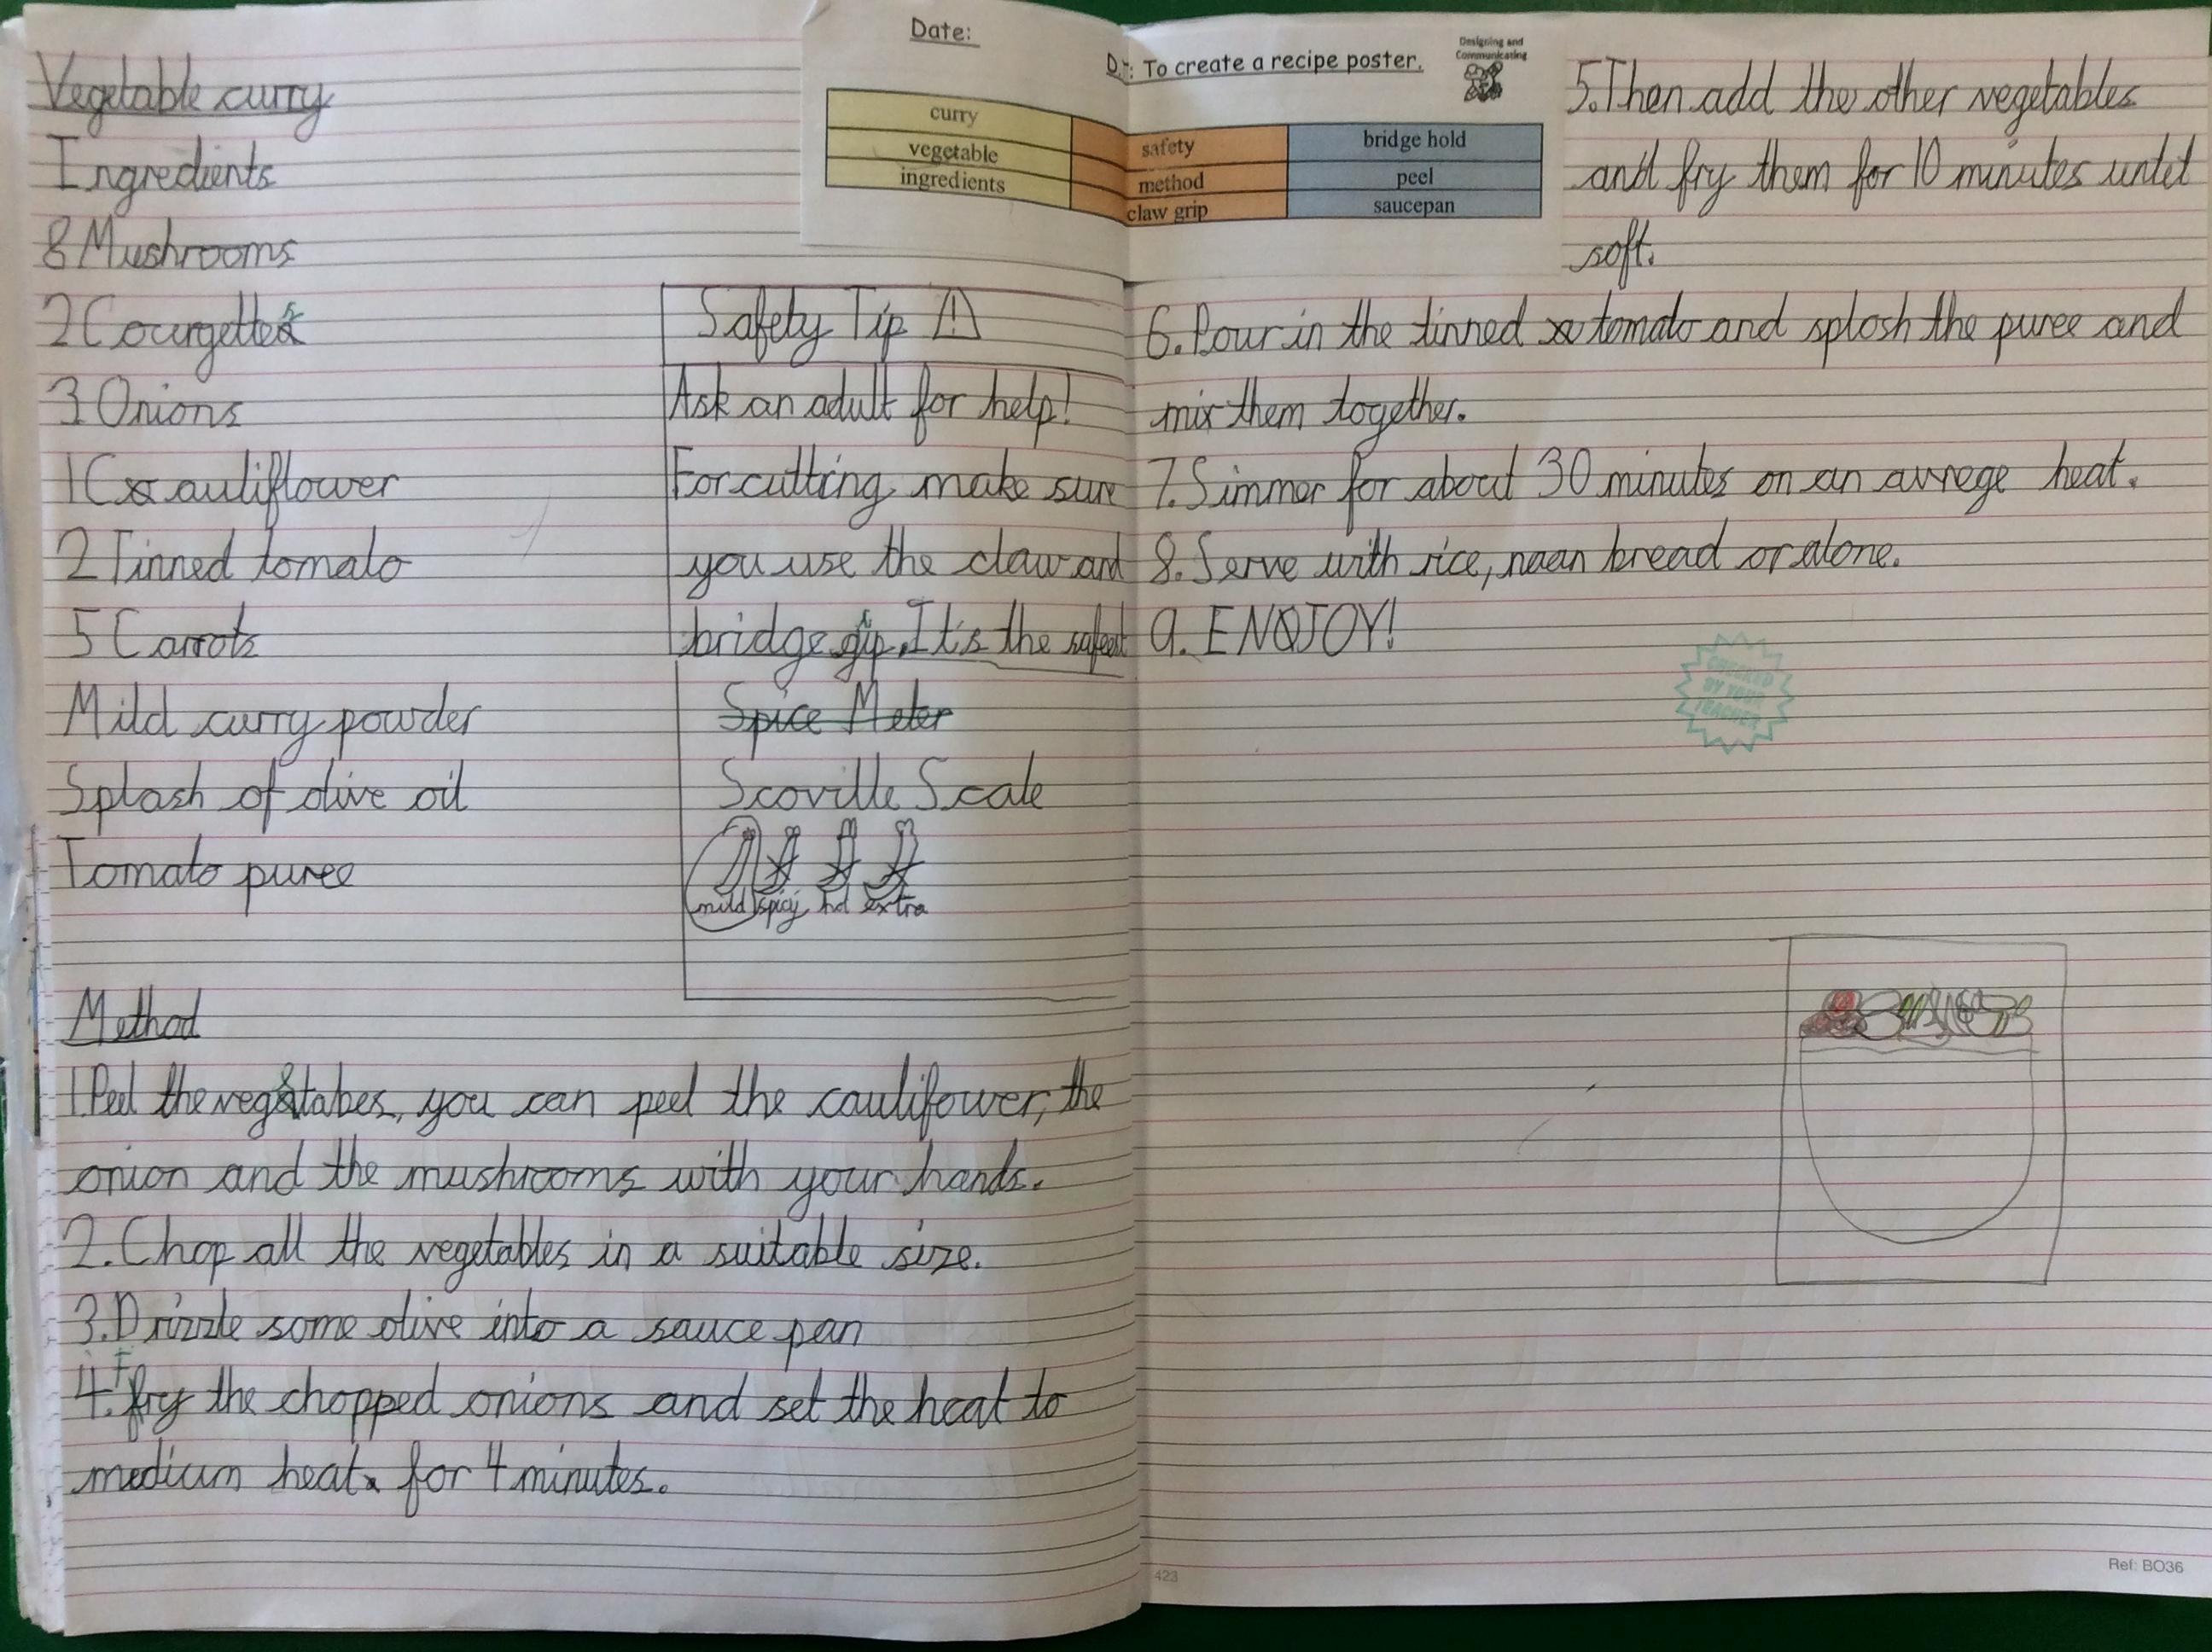 Vegetable curry
Ingredients
8 Mushrooms
2 Courgettes
3 Onions
1 Cauliflower
2 Tinned tomato
5 Carrots
Mild curry powder
Splash of olive oil
Tomato puree
Date:
D.T: To create a recipe poster.
Designing and
Communicating
curry
vegetable
ingredients
safety
method
claw grip
bridge hold
peel
saucepan
Safety Tip
Ask an adult for help!
For cutting make sure
you use the claw and
bridge grip. It's the safest
Spice Meter
Scoville Scale
mild spicy hot extra
Method
1. Peel the vegetabes, you can peel the caulifower, the
onion and the mushrooms with your hands.
2. Chop all the vegetables in a suitable size.
3. Drizzle some olive into a sauce pan
4. Fry the chopped onions and set the heat to
medium heat for 4 minutes.
5. Then add the other vegetables
and fry them for 10 minutes until
soft.
6. Pour in the tinned tomato and splosh the puree and
mix them together.
7. Simmer for about 30 minutes on an avrege heat.
8. Serve with rice, naan bread or alone.
9. ENJOY!
CHECKED
BY YOUR
TEACHER
423
Ref: BO36